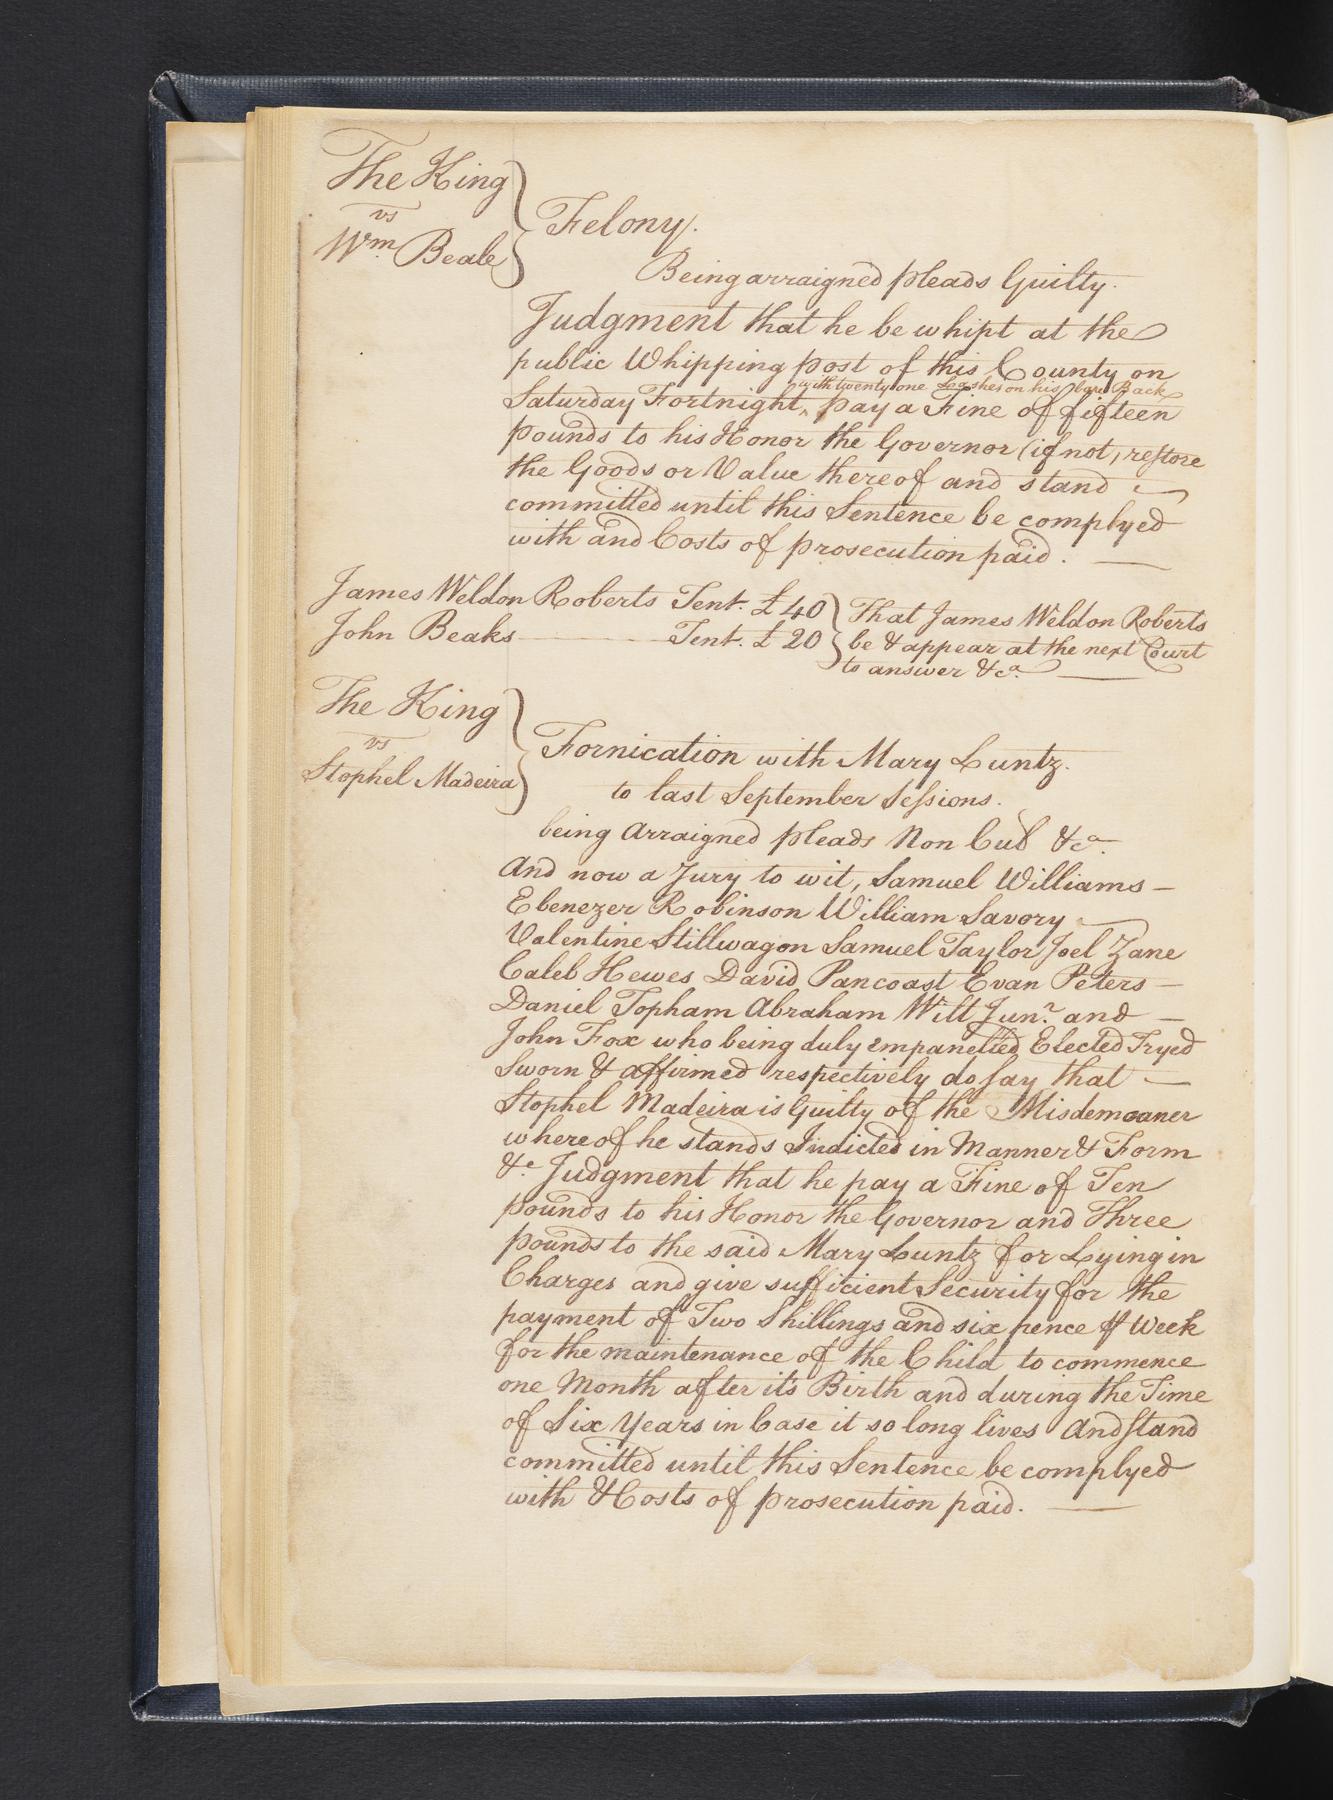 The King
vs
Wm. Beale
Felony.
Being arraigned pleads Guilty.
Judgment that he be whipt at the
public Whipping post of this County on
with twenty one Lashes on his bare Back
Saturday Fortnight, ^ pay a Fine of fifteen
pounds to his Honor the Governor (if not) restore
the Goods or Value thereof and stand
committed until this Sentence be complyed
with and Costs of prosecution paid. —
James Weldon Roberts Tent. £ 40
John Beaks Tent. £ 20
That James Weldon Roberts
be & appear at the next Court
to answer &ca. —
The King
vs
Stophel Madeira
Fornication with Mary Luntz.
to last September Sessions.
being arraigned pleads Non Cul &ca.
And now a Jury to wit, Samuel Williams —
Ebenezer Robinson William Savory
Valentine Stillwagon Samuel Taylor Joel Zane
Caleb Hewes David Pancoast Evan Peters —
Daniel Topham Abraham Witt Junr. and —
John Fox who being duly empanelled Elected Tryed
Sworn & affirmed respectively do say that —
Stophel Madeira is Guilty of the Misdemeaner
whereof he stands Indicted in Manner & Form
&c Judgment that he pay a Fine of Ten
pounds to his Honor the Governor and Three
pounds to the said Mary Luntz for Lying in
Charges and give sufficient Security for the
payment of Two Shillings and six pence ⅌ Week
for the maintenance of the Child to commence
one Month after its Birth and during the Time
of Six Years in Case it so long lives And stand
committed until this Sentence be complyed
with & Costs of prosecution paid. —